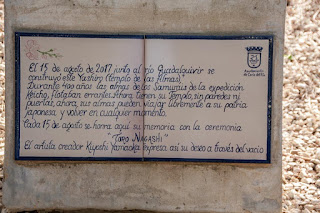 El 15 de agosto de 2017 junto al río Guadalquivir se
construyó este Yashiro (templo de las Almas).
Durante 400 años las almas de los Samurais de la expedición
Keicho, flotaban errantes. Ahora tienen su Templo, sin paredes ni
puertas, ahora, sus almas pueden viajar libremente a su patria
japonesa y volver en cualquier momento.
Cada 15 de agosto se honra aquí su memoria con la ceremonia
"Toro NAGASHI"
El artista creador Kiyoshi Yamaoka expresa así su deseo a través del vacío
Ayuntamiento
de Coria del Río